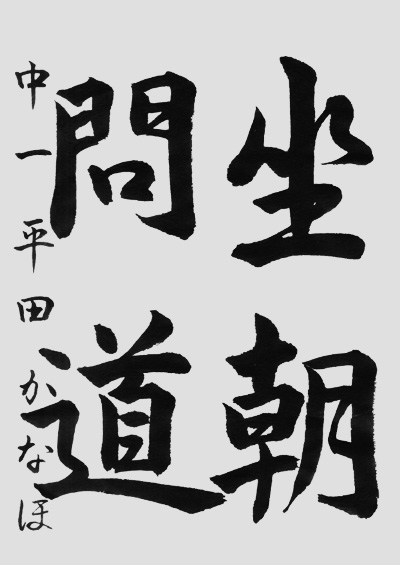 坐朝
問道
中一平田かなほ